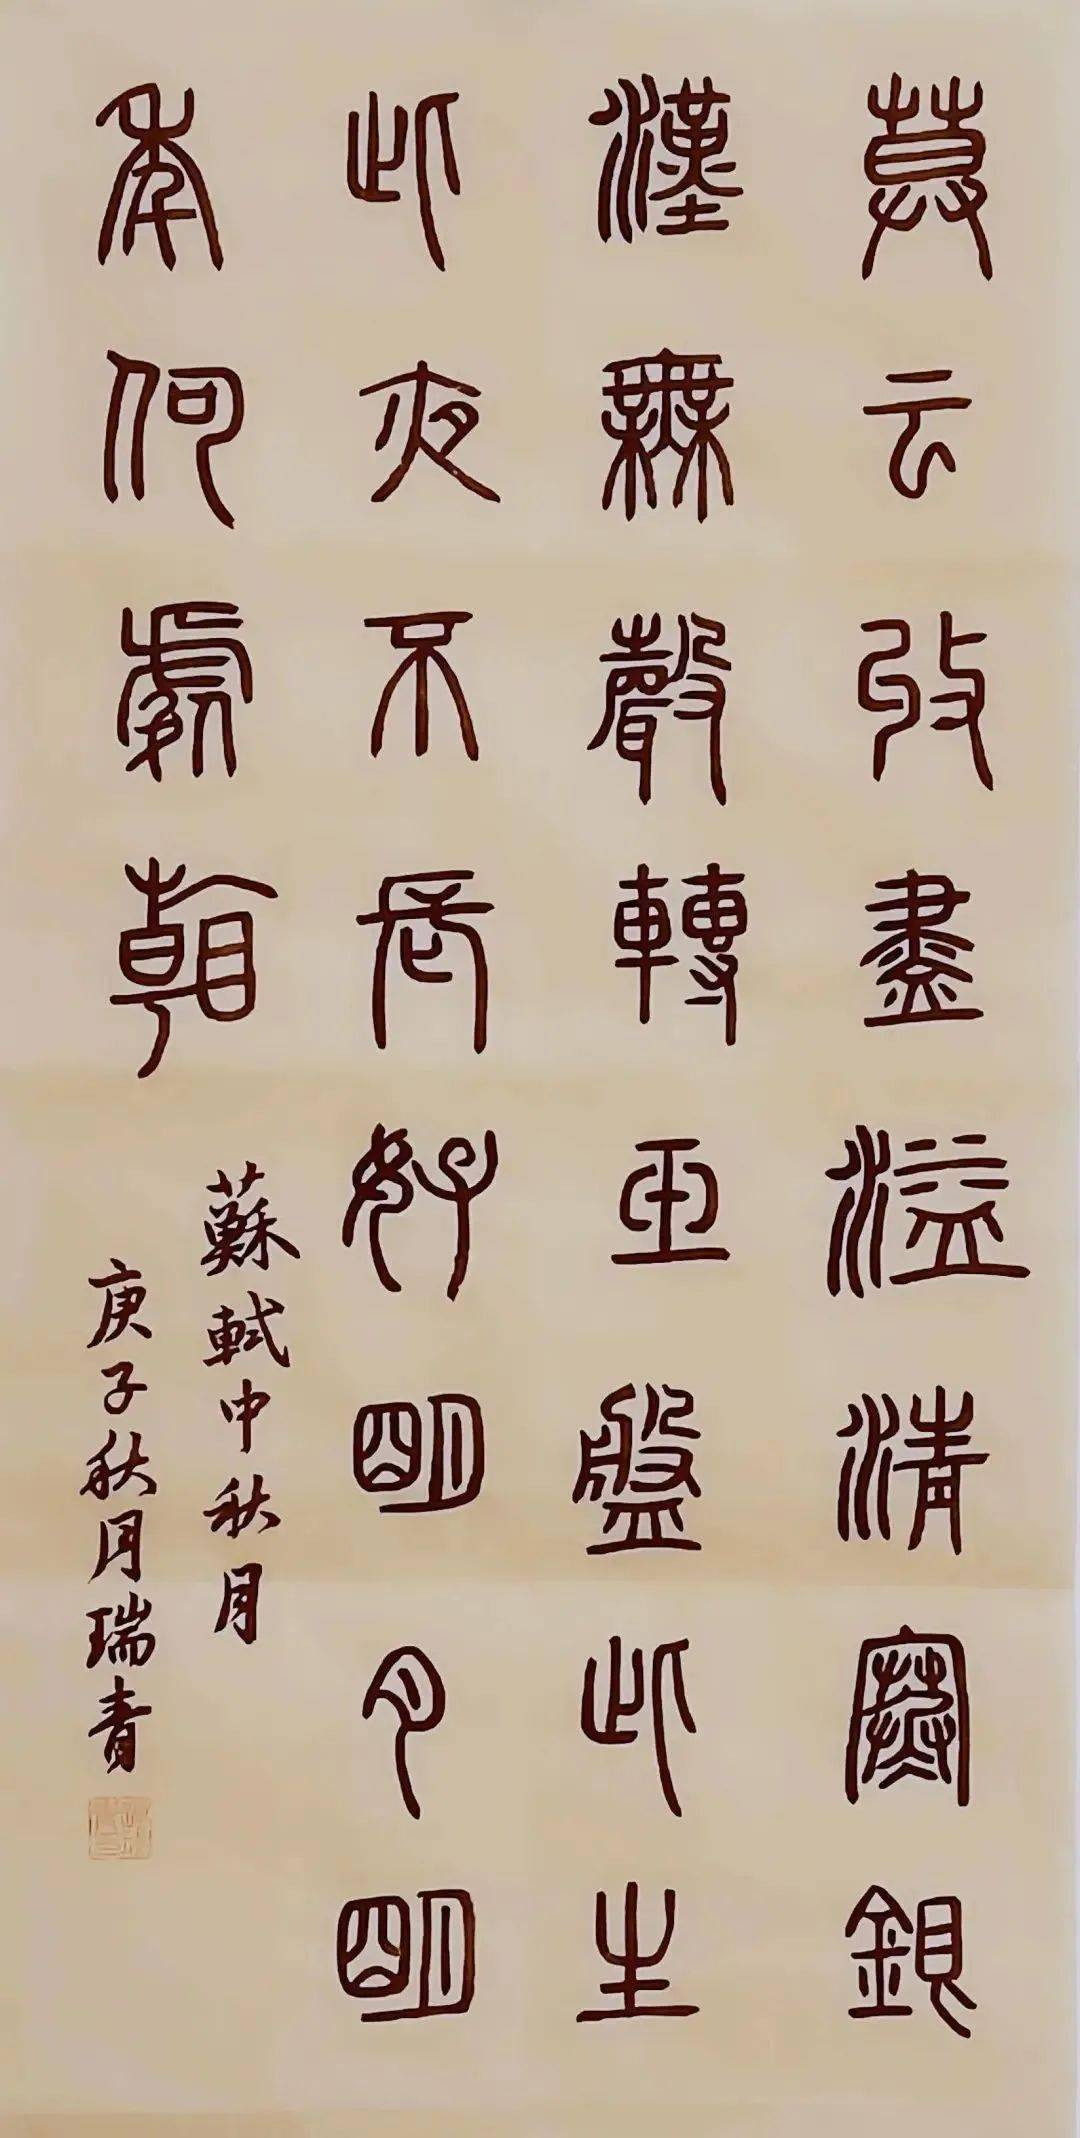 莫云收盡溢清寒銀
漢無聲轉玉盤此生
此夜不長好明月明
年何處看
蘇軾中秋月
庚子秋月瑞青